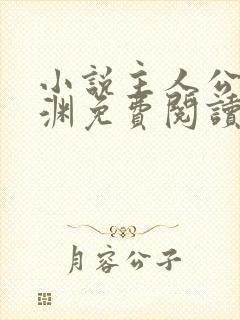 小說主人公
淵免費閱讀
月容公子